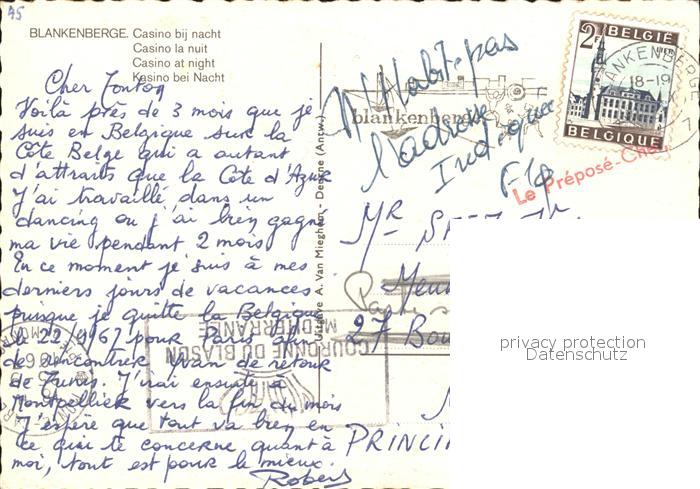 45
BLANKENBERGE. Casino bij nacht
Casino la nuit
Casino at night
Kasino bei Nacht
Cher Tonton
Voilà près de 3 mois que je
suis en Belgique sur la
Côte Belge qui a autant
d'attraits que la Côte d'Azur
J'ai travaillé dans un
dancing où j'ai bien gagné
ma vie pendant 2 mois
En ce moment je suis à mes
derniers jours de vacances
puisque je quitte la Belgique
le 22/9/67 pour Paris afin
de rencontrer Yvan de retour
de Tunis. J'irai ensuite à
Montpellier vers la fin du mois
J'espère que tout va bien en
ce qui te concerne quant à
moi, tout est pour le mieux.
Robert
Uitgave A. Van Mieghem - Deurne (Antw.)
N'Habite pas
l'adresse
Indiquée
blankenberge
2F BELGIË
LIER
BELGIQUE
BLANKENBERGE
18-19
Le Préposé-Chef
MR
27 Bou
COURONNE DU BLASON
MEDITERRANEE
PRINCI
privacy protection
Datenschutz